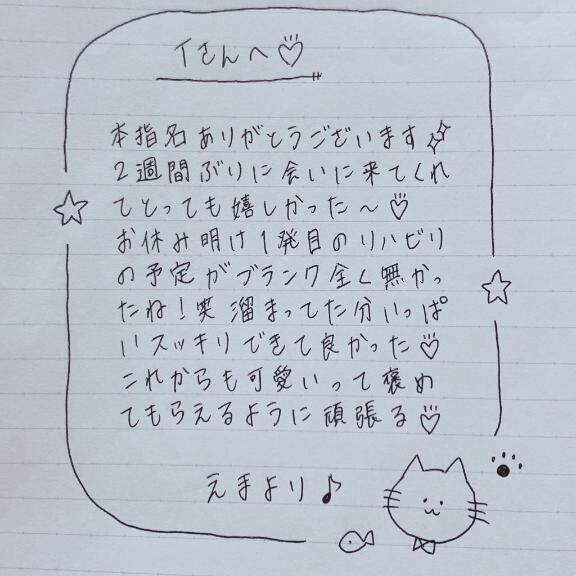 Tさんへ♡
本指名ありがとうございます✨
2週間ぶりに会いに来てくれ
てとっても嬉しかった〜♡
お休み明け1発目のリハビリ
の予定がブランク全く無かっ
たね!笑 溜まってた分いっぱ
いスッキリできて良かった♡
これからも可愛いって褒め
てもらえるように頑張る♡
えまより♪